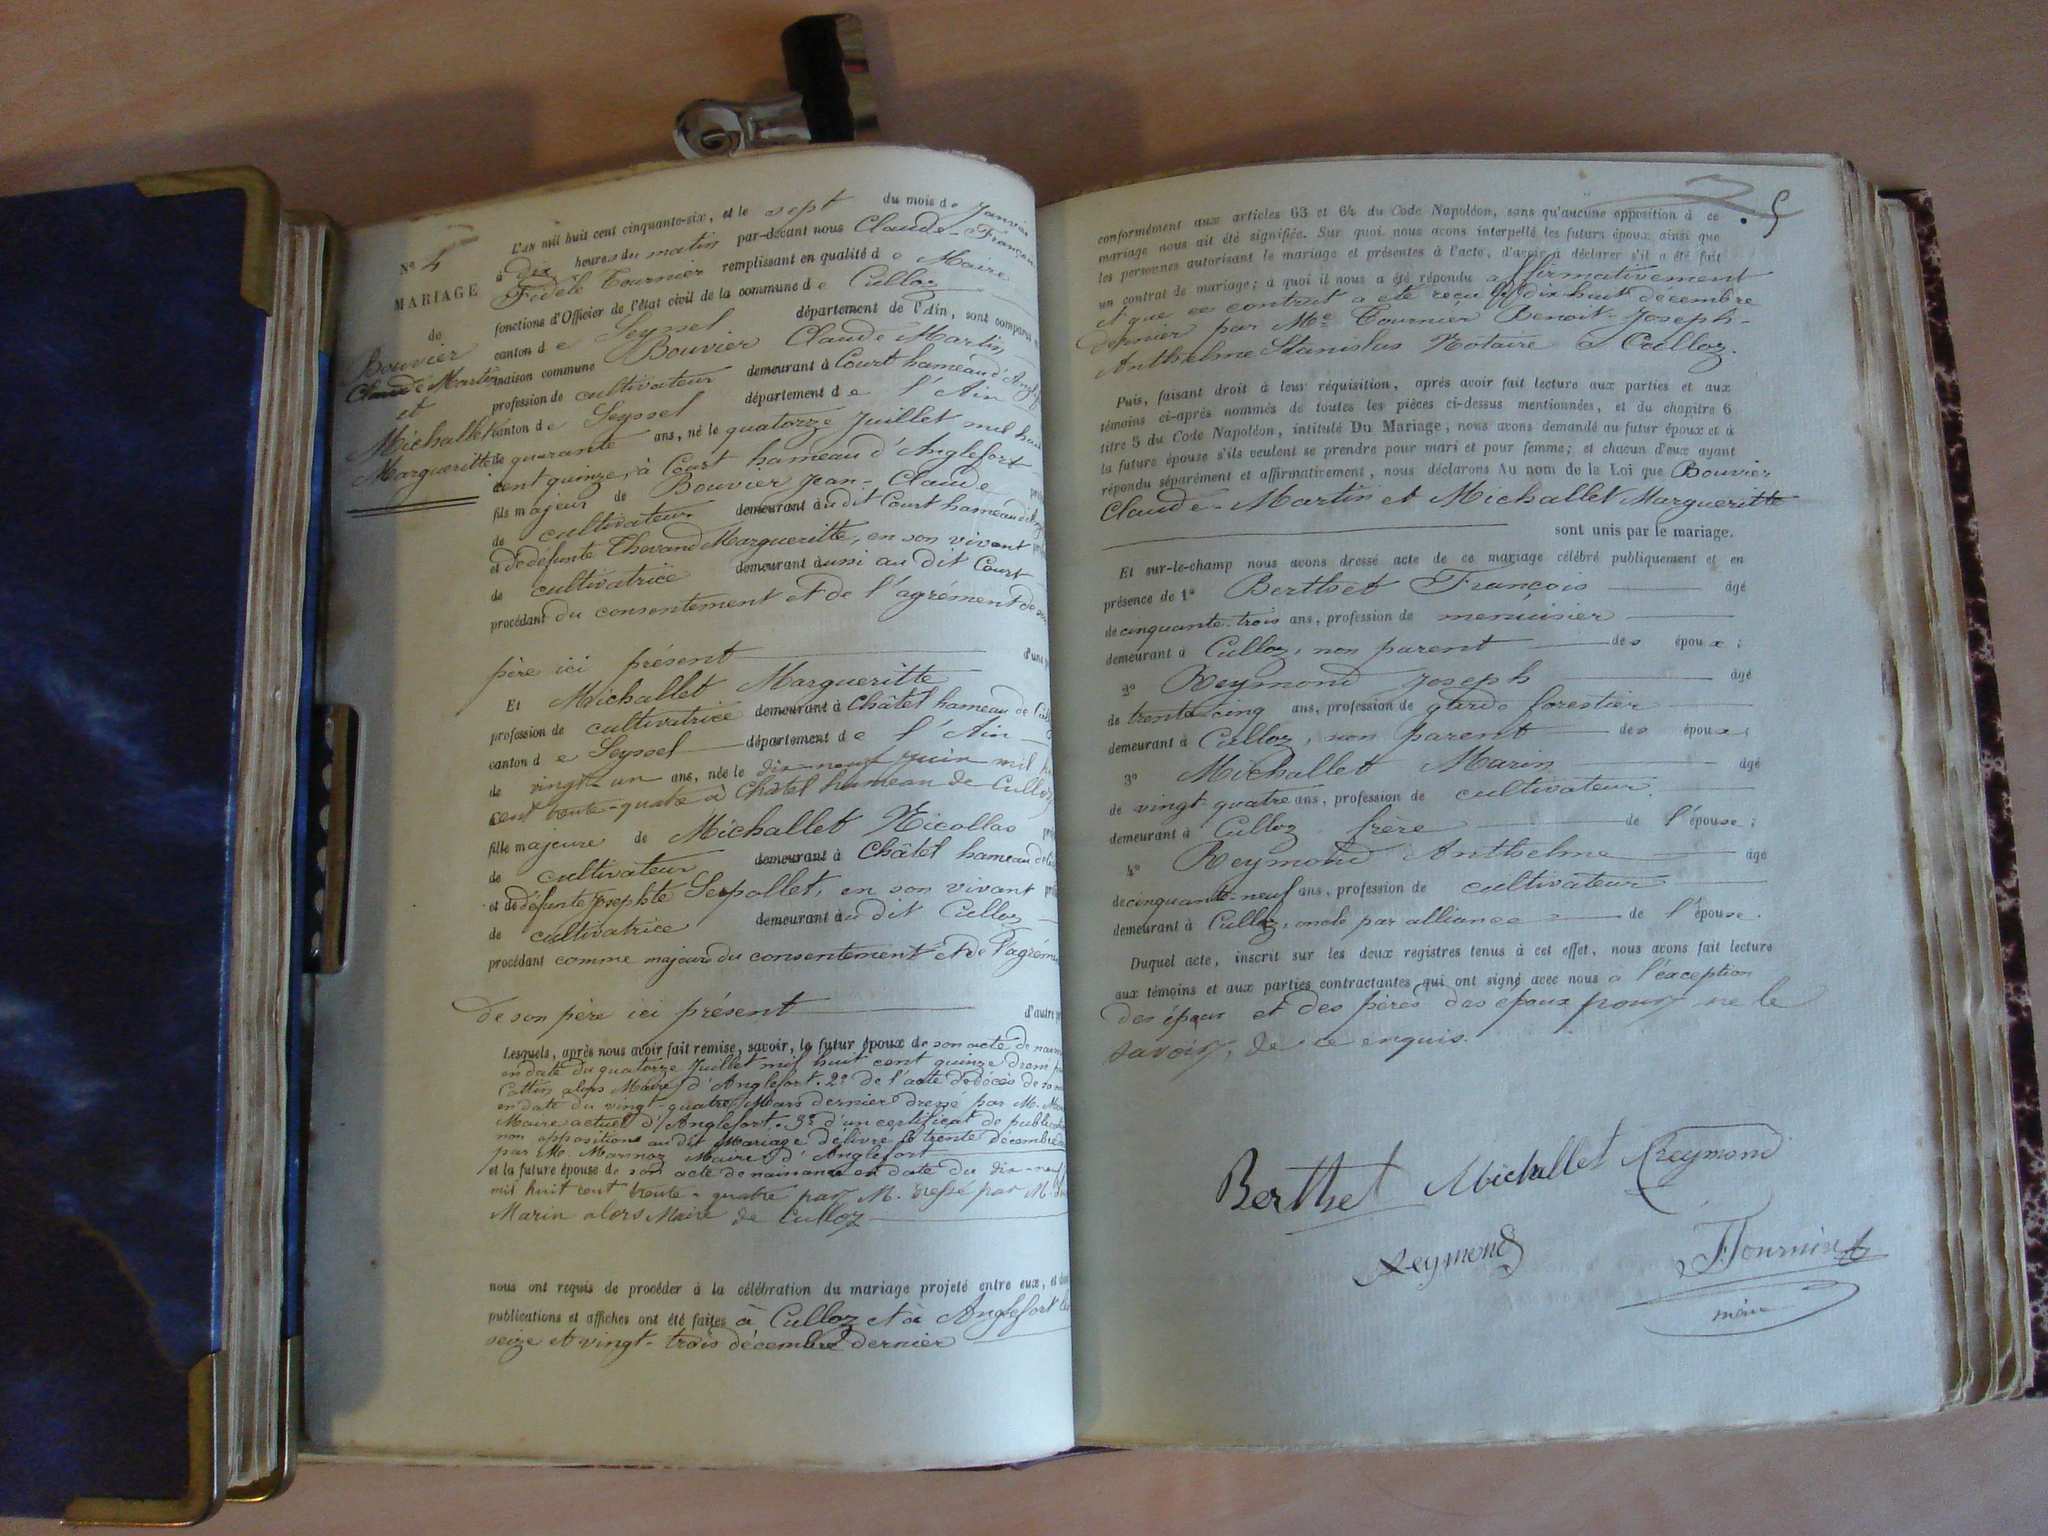 N° 4
MARIAGE
de
Bouvier
Claude Martin
et
Michallet
Margueritte
L'AN mil huit cent cinquante-six, et le sept du mois de Janvier
à dix heures du matin par-devant nous Claude-François
Fidèle Tournier remplissant en qualité de Maire
fonctions d'Officier de l'état civil de la commune de Culloz
canton de Seyssel département de l'Ain, sont comparus
maison commune Bouvier Claude Martin
profession de cultivateur demeurant à Court hameau d'
canton de Seyssel département de l'Ain
de quarante ans, né le quatorze Juillet mil huit
cent quinze, à Court hameau d'Anglefort
fils majeur de Bouvier Jean-Claude
de cultivateur demeurant àu dit Court hameau
et de défunte Margueritte, en son vivant
de cultivatrice demeurant àussi au dit Court
procédant du consentement et de l'agrément de son
père ici présent d'une
Et Michallet Margueritte
profession de cultivatrice demeurant à Châtel hameau de
canton de Seyssel département de l'Ain
de vingt-un ans, née le dix-neuf Juin mil
cent trente-quatre à Châtel hameau de Culloz
fille majeure de Michallet Nicollas
de cultivateur demeurant à Châtel hameau
et de défunte Josephte Serpollet, en son vivant
de cultivatrice demeurant àu dit Culloz
procédant comme majeure du consentement et de l'agrément
de son père ici présent d'autre
Lesquels, après nous avoir fait remise, savoir, le futur époux de son acte de
en date du quatorze Juillet mil huit cent quinze
Cottin alors Maire d'Anglefort. 2° de l'acte de décès de
en date du vingt-quatre Mars dernier dressé par M.
Maire actuel d'Anglefort. 3° d'un certificat de
non opposition au dit Mariage délivré le trente décembre
par M. Marmoz Maire d'Anglefort
et la future épouse de son acte de naissance en date du dix-neuf
mil huit cent trente-quatre par M. dressé par M.
Marin alors Maire de Culloz
nous ont requis de procéder à la célébration du mariage projeté entre eux, et dont
publications et affiches ont été faites à Culloz et à Anglefort les
seize et vingt-trois décembre dernier
5
conformément aux articles 63 et 64 du Code Napoléon, sans qu'aucune opposition à ce
mariage nous ait été signifiée. Sur quoi, nous avons interpellé les futurs époux ainsi que
les personnes autorisant le mariage et présentes à l'acte, d'avoir à déclarer s'il a été fait
un contrat de mariage; à quoi il nous a été répondu affirmativement
et que ce contrat a été reçu le dix huit décembre
dernier par Me Tournier Benoit-Joseph-
Anthelme Stanislas Notaire à Culloz.
Puis, faisant droit à leur réquisition, après avoir fait lecture aux parties et aux
témoins ci-après nommés de toutes les pièces ci-dessus mentionnées, et du chapitre 6
titre 5 du Code Napoléon, intitulé Du Mariage; nous avons demandé au futur époux et à
la future épouse s'ils veulent se prendre pour mari et pour femme; et chacun d'eux ayant
répondu séparément et affirmativement, nous déclarons Au nom de la Loi que Bouvier
Claude-Martin et Michallet Margueritte
sont unis par le mariage.
Et sur-le-champ nous avons dressé acte de ce mariage célébré publiquement et en
présence de 1° Berthet François âgé
de cinquante-trois ans, profession de menuisier
demeurant à Culloz, non parent des époux;
2° Reymond Joseph âgé
de trente cinq ans, profession de garde forestier
demeurant à Culloz, non parent des époux;
3° Michallet Marin âgé
de vingt quatre ans, profession de cultivateur.
demeurant à Culloz frère de l'épouse;
4° Reymond Anthelme âgé
de cinquante-neuf ans, profession de cultivateur
demeurant à Culloz, oncle par alliance de l'épouse.
Duquel acte, inscrit sur les deux registres tenus à cet effet, nous avons fait lecture
aux témoins et aux parties contractantes qui ont signé avec nous à l'exception
des époux et des pères des epoux pour ne le
savoir, de ce enquis.
Berthet Michallet Reymond
Reymond
F Tournier
maire